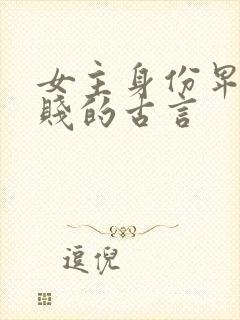 女主身份卑
贱的古言
逗倪